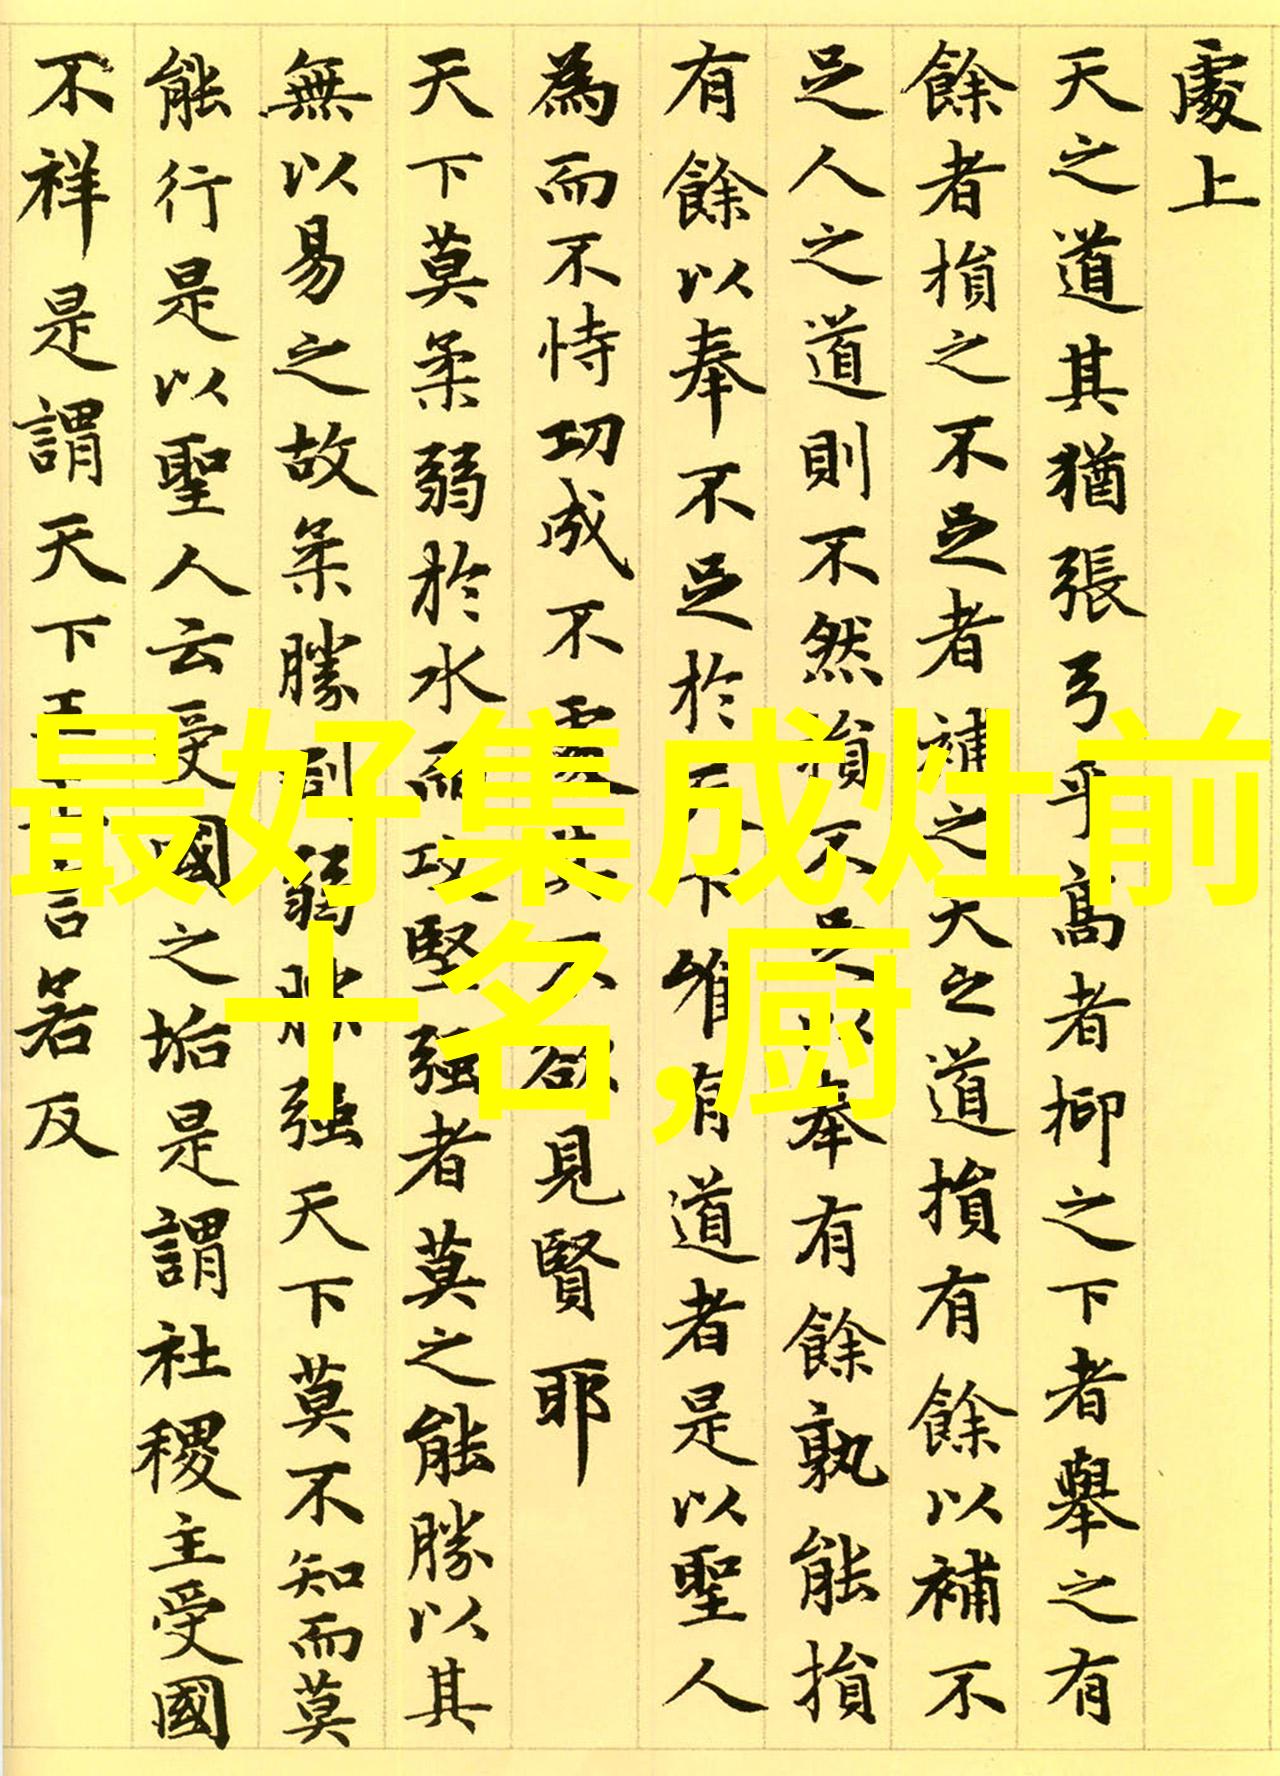 處上
天之道其猶張弓乎高者抑之下者舉之有
餘者損之不足者補之天之道損有餘以補不
足人之道則不然損不足以奉有餘孰能損
有餘以奉不足於天下唯有道者是以聖人
為而不恃功成不處其不欲見賢耶
天下莫柔弱於水而攻堅強者莫之能勝以其
無以易之故柔勝剛弱勝強天下莫不知而莫
能行是以聖人云受國之垢是謂社稷主受國
不祥是謂天下王正言若反
最好集成灶前
十名,厨